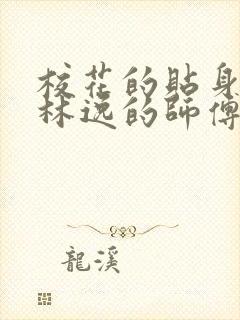 校花的貼身
林逸的師傅
龍溪